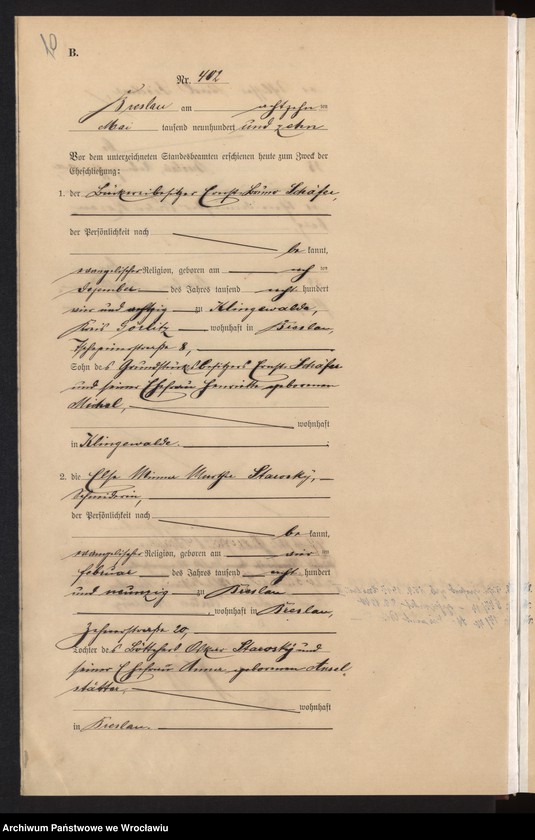 B.
Nr. 402
Breslau am achtzehn ten
Mai tausend neunhundert und zehn
Vor dem unterzeichneten Standesbeamten erschienen heute zum Zweck der
Eheschließung:
1. der Bäckereibesitzer Ernst Bruno Schäfer,
der Persönlichkeit nach
be kannt,
evangelischer Religion, geboren am ten
Dezember des Jahres tausend acht hundert
vier und achtzig zu Klingewalde,
Kreis Görlitz wohnhaft in Breslau,
8,
Sohn des Grundstücksbesitzers Ernst Schäfer
und seiner Ehefrau Henriette geborenen
Michel,
wohnhaft
in Klingewalde.
2. die Else Minna Martha Starosky,
Schneiderin,
der Persönlichkeit nach
be kannt,
evangelischer Religion, geboren am vier ten
Februar des Jahres tausend acht hundert
und neunzig zu Breslau
, wohnhaft in Breslau,
Zehnerstraße 20,
Tochter des Oskar Starosky und
seiner Ehefrau Anna geborenen
wohnhaft
in Breslau.
Archiwum Państwowe we Wrocławiu